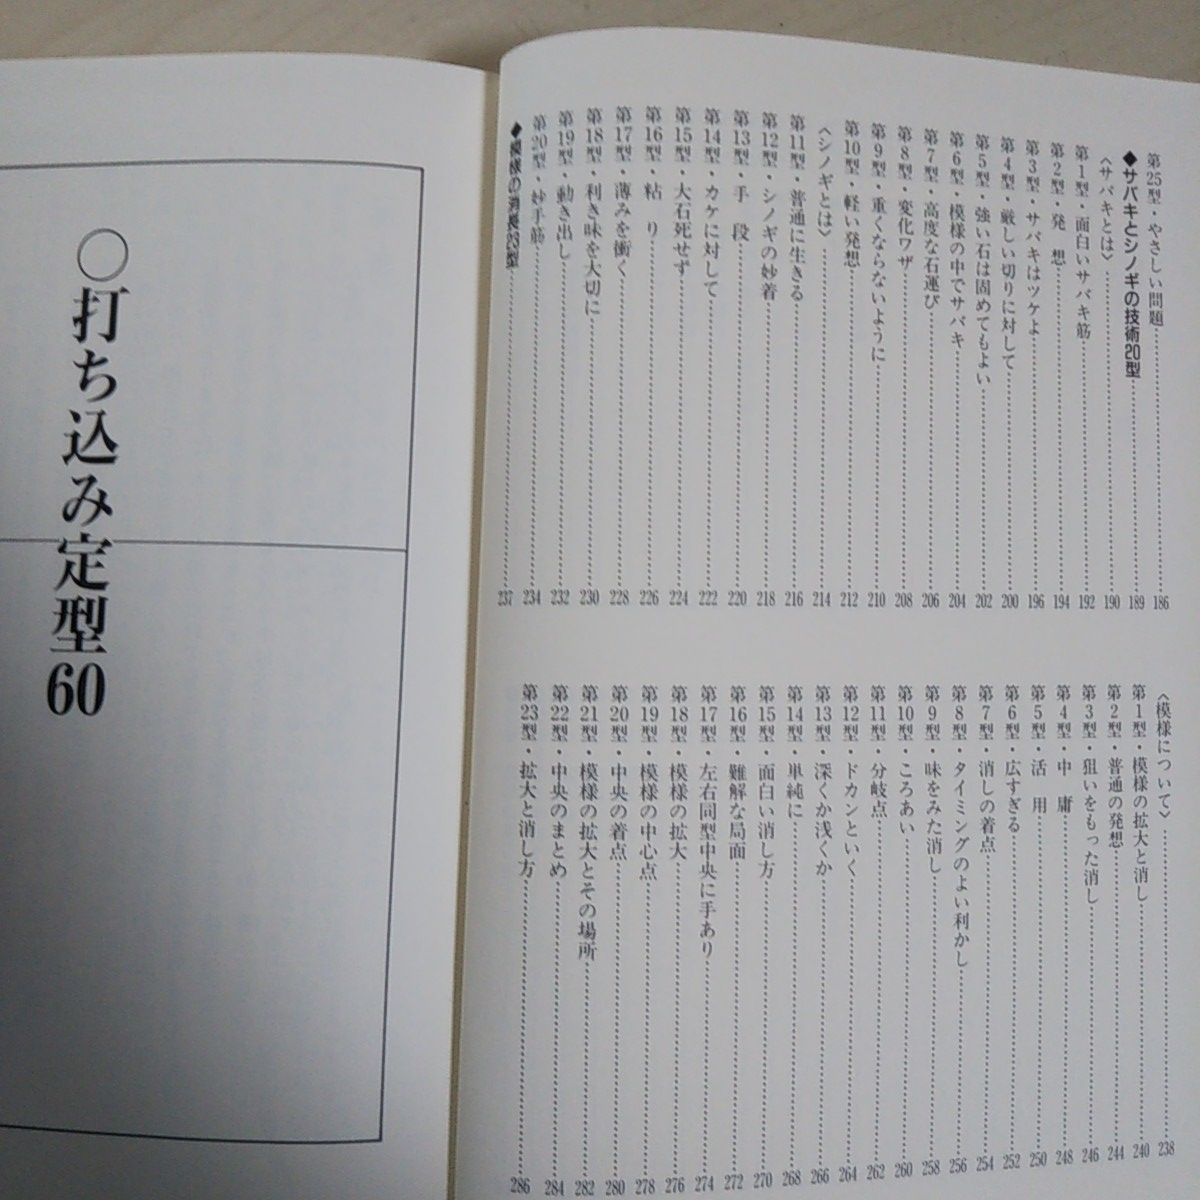 第25型・やさしい問題……186
◆サバキとシノギの技術20型……189
〈サバキとは〉……190
第1型・面白いサバキ筋……192
第2型・発　想……194
第3型・サバキはツケよ……196
第4型・厳しい切りに対して……200
第5型・強い石は固めてもよい……202
第6型・模様の中でサバキ……204
第7型・高度な石運び……206
第8型・変化ワザ……208
第9型・重くならないように……210
第10型・軽い発想……212
〈シノギとは〉……214
第11型・普通に生きる……216
第12型・シノギの妙着……218
第13型・手　段……220
第14型・カケに対して……222
第15型・大石死せず……224
第16型・粘　り……226
第17型・薄みを衝く……228
第18型・利き味を大切に……230
第19型・動き出し……232
第20型・妙手筋……234
◆模様の消長23型……237
〈模様について〉……238
第1型・模様の拡大と消し……240
第2型・普通の発想……244
第3型・狙いをもった消し……246
第4型・中　庸……248
第5型・活　用……250
第6型・広すぎる……252
第7型・消しの着点……254
第8型・タイミングのよい利かし……256
第9型・味をみた消し……258
第10型・ころあい……260
第11型・分岐点……262
第12型・ドカンといく……264
第13型・深くか浅くか……266
第14型・単純に……268
第15型・面白い消し方……270
第16型・難解な局面……272
第17型・左右同型中央に手あり……274
第18型・模様の拡大……276
第19型・模様の中心点……278
第20型・中央の着点……280
第21型・模様の拡大とその場所……282
第22型・中央のまとめ……284
第23型・拡大と消し方……286
○打ち込み定型60